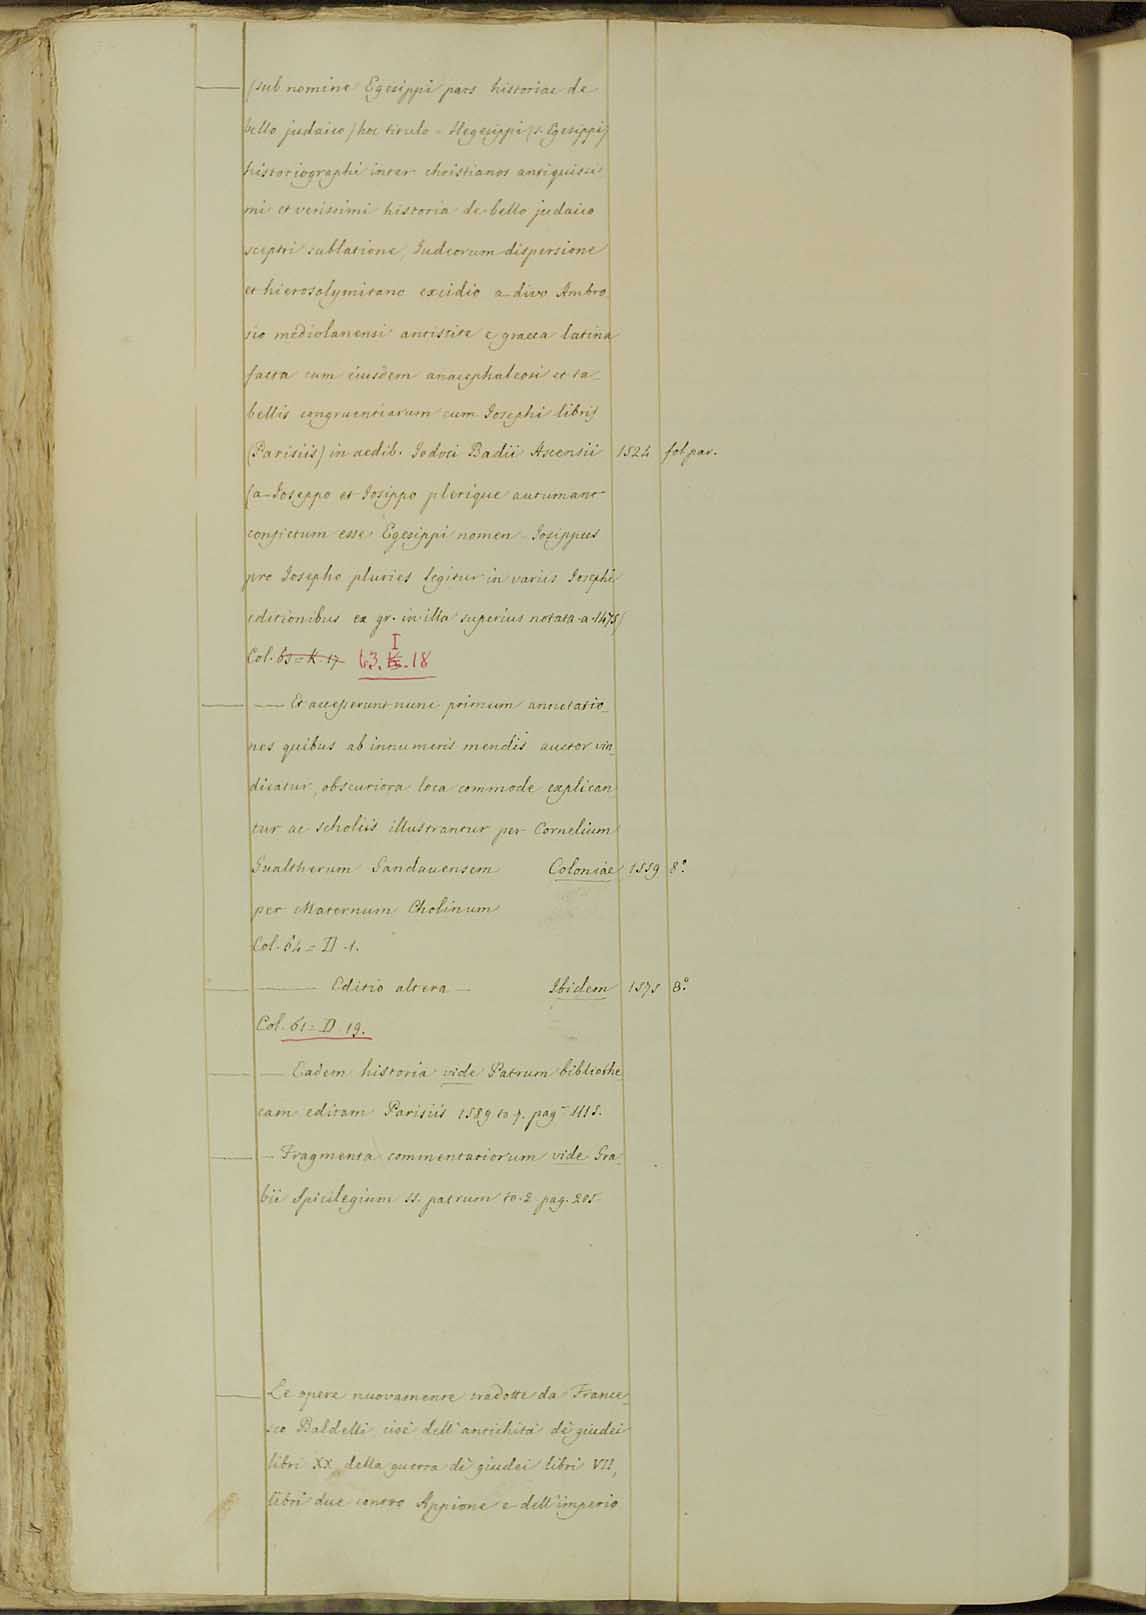 — (sub nomine Egesippi pars historiae de
bello judaico) hoc titulo = Hegesippi (s. Egesippi)
historiographi inter christianos antiquissi
mi et verissimi historia de bello judaico
sceptri sublatione, Judeorum dispersione
et hierosolymitano excidio a divo Ambro
sio mediolanensi antistite e graeca latina
facta cum eiusdem anacephaleosi et ta_
bellis congruentiarum cum Josephi libris
(Parisiis) in aedib. Jodoci Badii Ascensii 1524 fol par.
(a Joseppo et Josippo plerique autumant
confictum esse Egesippi nomen - Josippus
pro Josepho pluries legitur in variis Josephi
editionibus ex gr. in illa superius notata a. 1475)
I
Col. 63 = K. 17 63. .18
— — Et accesserunt nunc primum annotatio_
nes quibus ab innumeris mendis auctor vin_
dicatur, obscuriora loca commode explican
tur ac scholiis illustrantur per Cornelium
Gualtherum Gandauensem Coloniae 1559 8.°
per Maternum Cholinum
Col. 64 = D. 1.
— — Editio altera — Ibidem 1575 8.°
Col. 61 = D. 19.
— — Eadem historia vide Patrum bibliothe_
cam editam Parisiis 1589 to 7. pag. 1115.
— — Fragmenta commentariorum vide Gra_
bii Spicilegium ss. patrum to. 2 pag. 205
— Le opere nuovamente tradotte da France_
sco Baldelli cioè dell'antichità de giudei
libri XX, della guerra de giudei libri VII,
libri due contro Appione e dell'imperio